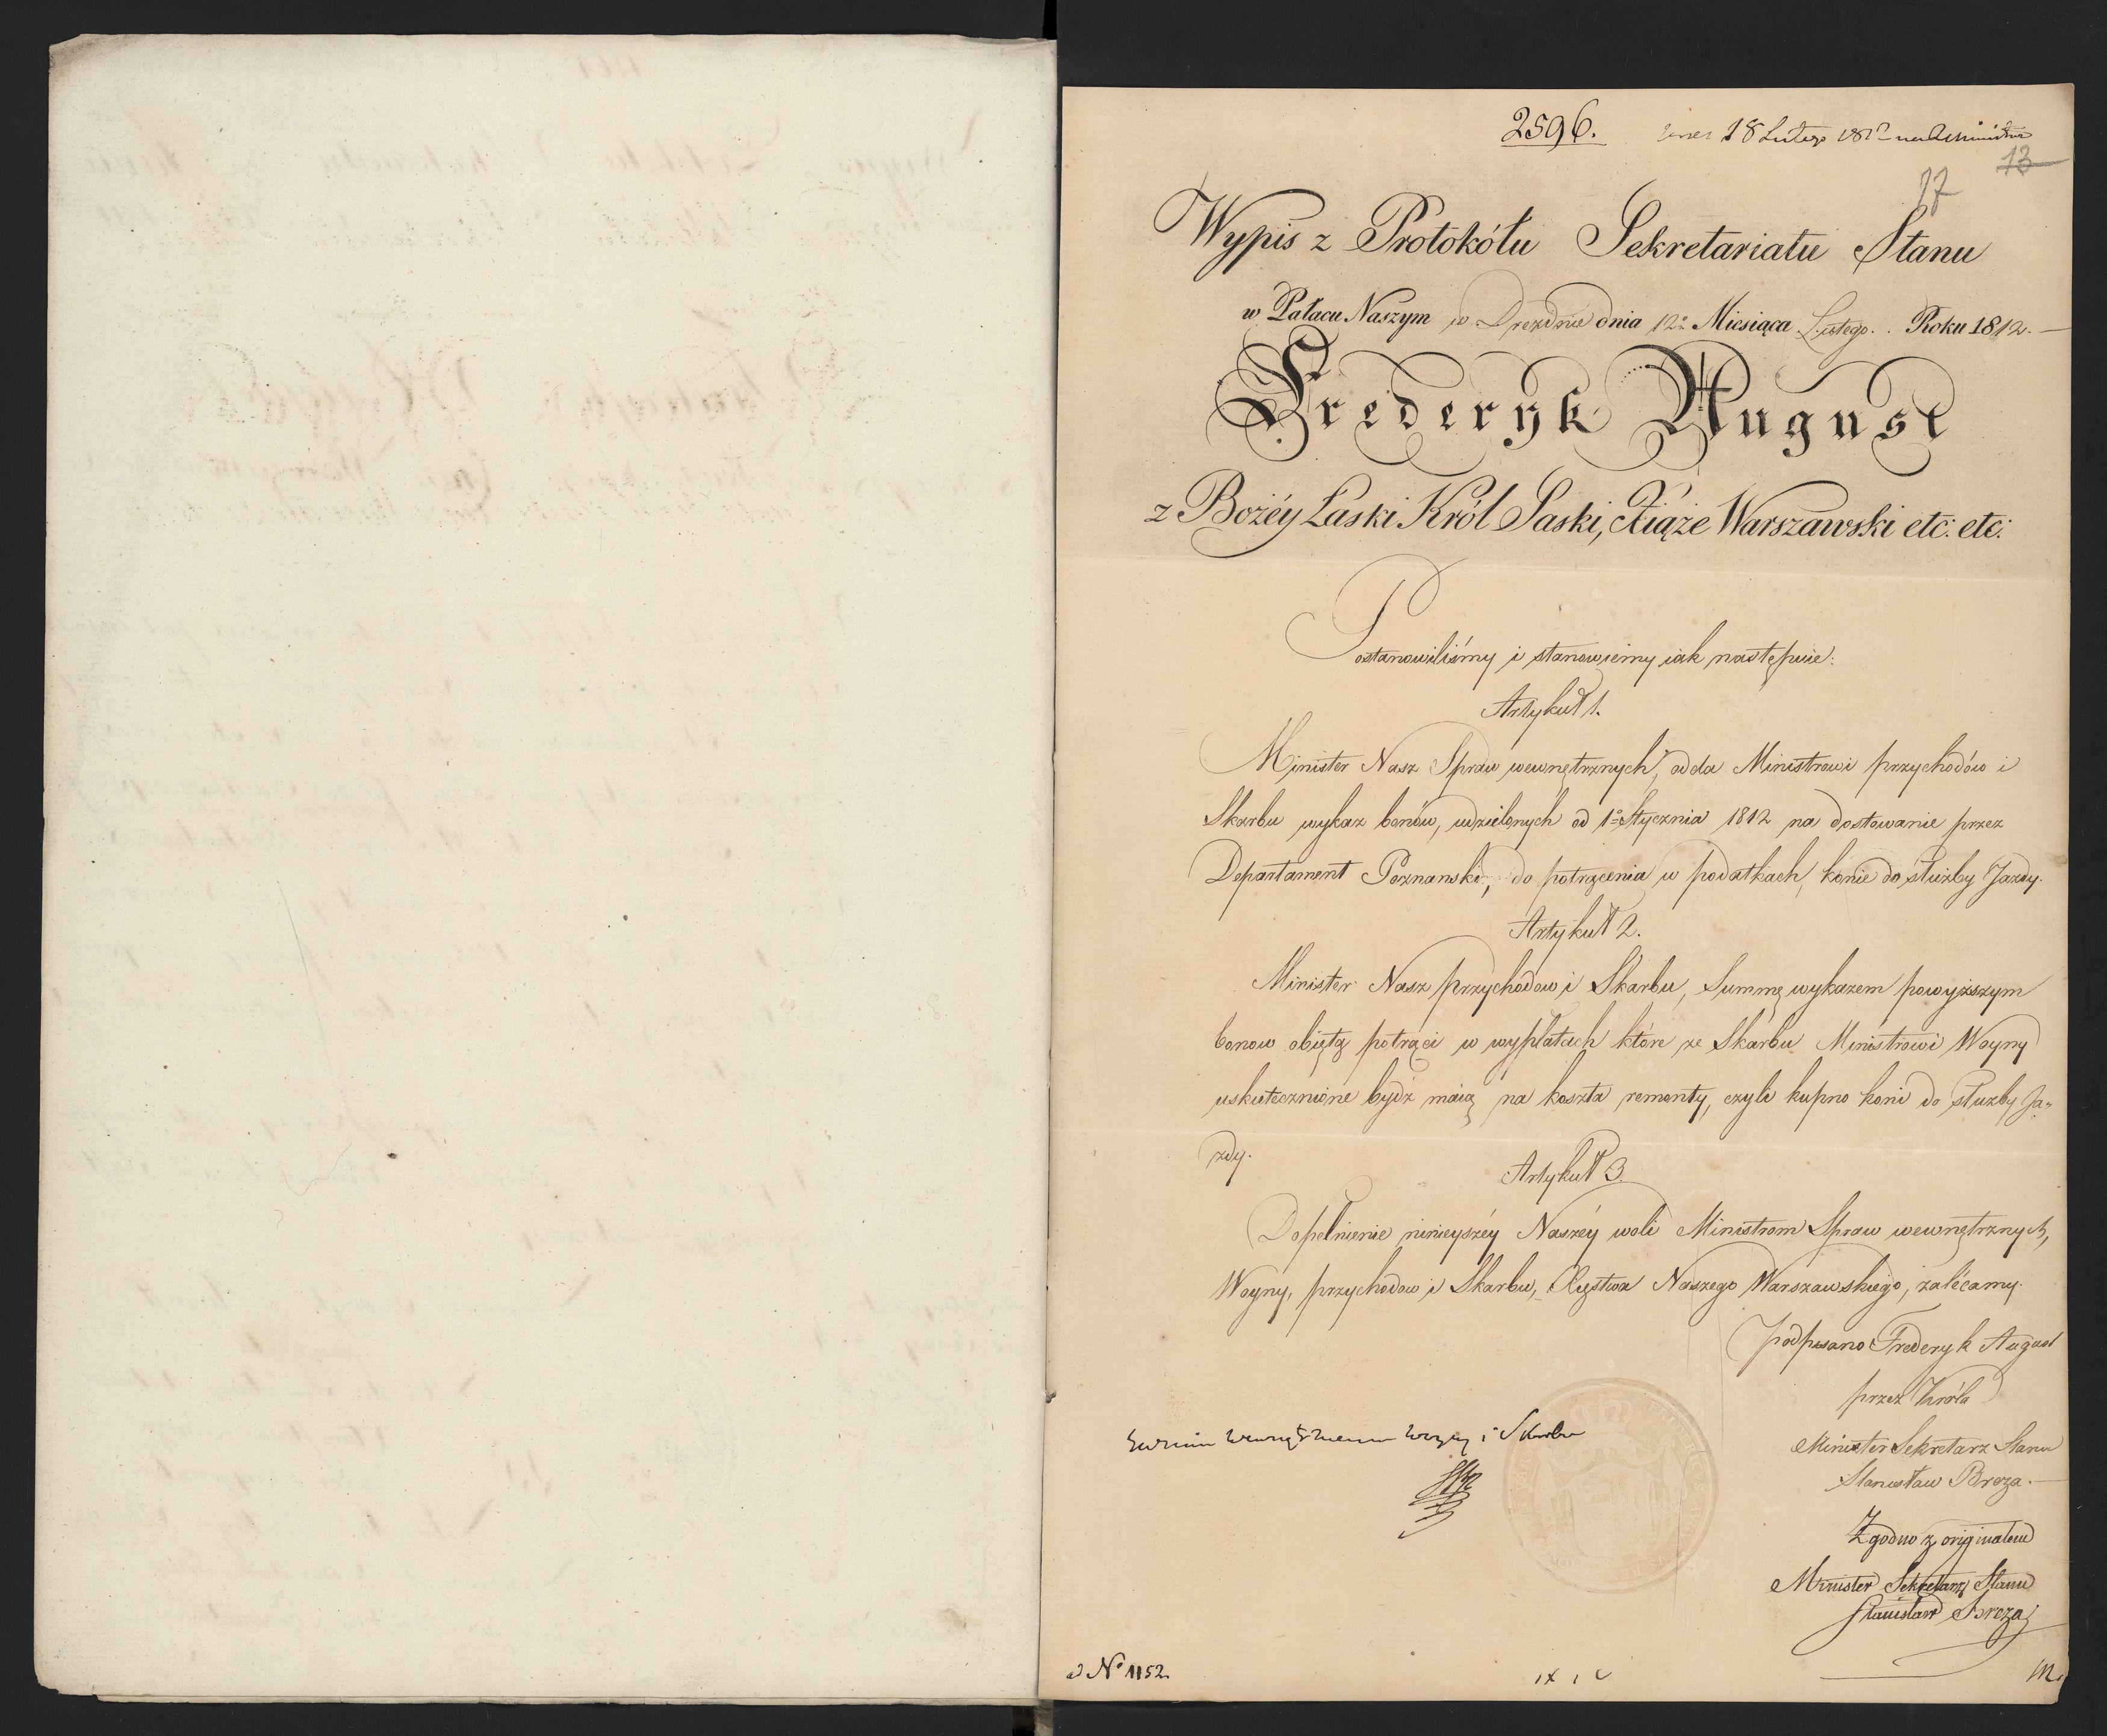 2596.
18 Lutego 1812
13
17
Wypis z Protokółu Sekretariatu Stanu
w Pałacu Naszym w Dreznie dnia 12º Miesiąca Lutego. Roku 1812.
Fryderyk August
z Bożéy Łaski Król Saski, Xiąże Warszawski etc: etc:
Postanowiliśmy i stanowiemy iak następuie:
Artykuł 1.
Minister Nasz Spraw wewnętrznych, odda Ministrowi przychodów i
Skarbu wykaz bonów, udzielonych od 1º Stycznia 1812 na dostawanie przez
Departament Poznanski, do potrącenia w podatkach, konie do służby Jazdy.
Artykuł 2.
Minister Nasz przychodow i Skarbu, Summę wykazem powyższym
bonow obiętą potrąci w wypłatach które ze Skarbu Ministrowi Woyny
uskutecznione bydź maią na koszta remonty, czyli kupno koni do służby Ja=
zdy.
Artykuł 3.
Dopełnienie ninieyszéy Naszéy woli Ministrom Spraw wewnętrznych,
Woyny, przychodow i Skarbu, Xięstwa Naszego Warszawskiego, zalécamy.
podpisano Frederyk August
przez Króla
Minister Sekretarz Stanu
Stanisław Breza.
Woyny i Skarbu
Zgodno z originałem
Minister Sekretarz Stanu
Stanisław Breza
Nº 1152.